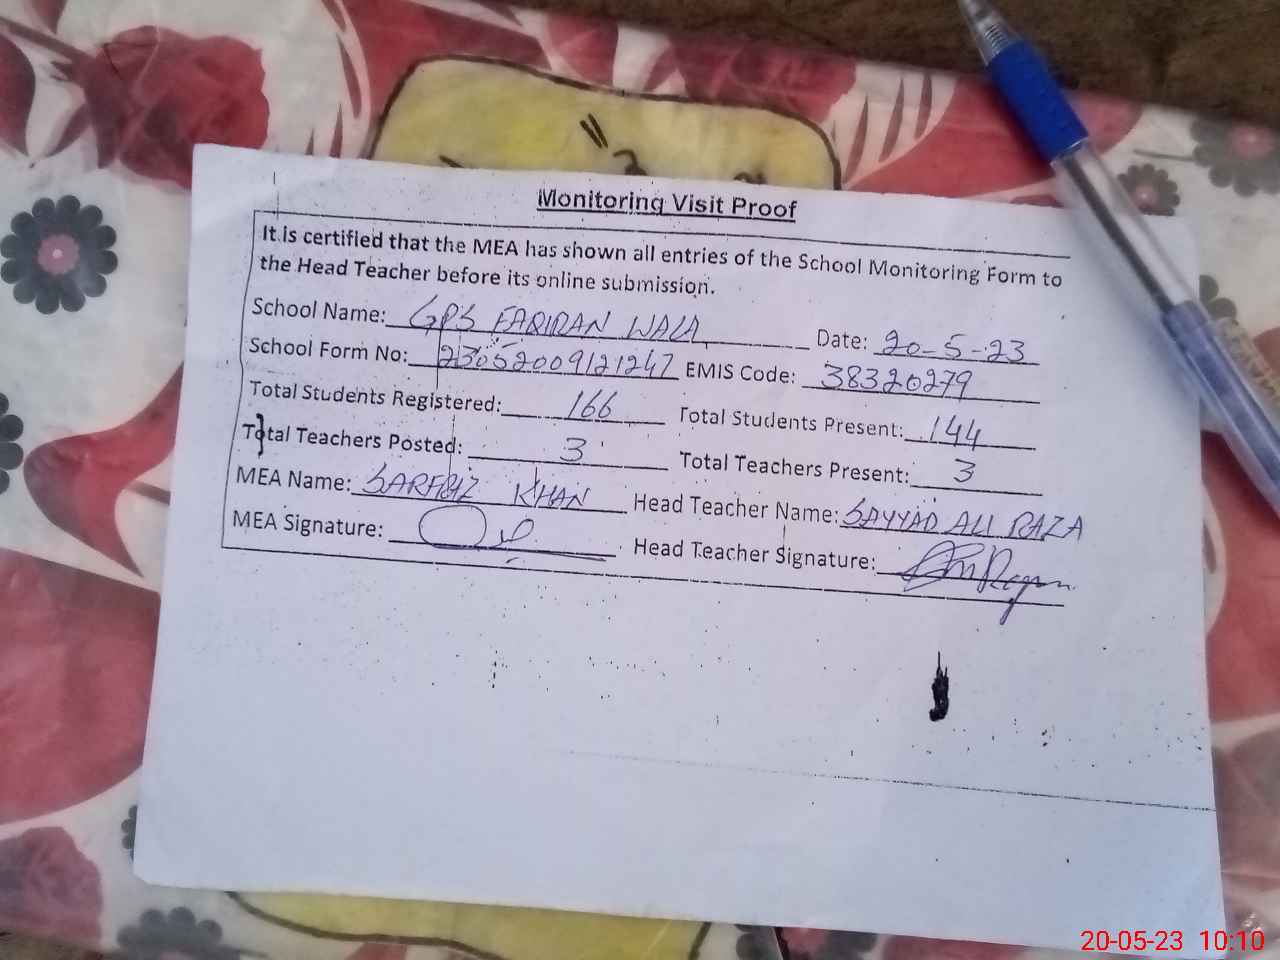 Monitoring Visit Proof
It is certified that the MEA has shown all entries of the School Monitoring Form to
the Head Teacher before its online submission.
School Name: GPS FAQIRAN WALA Date: 20-5-23
School Form No: 23052009121247 EMIS Code: 38320279
Total Students Registered: 166 Total Students Present: 144
Total Teachers Posted: 3 Total Teachers Present: 3
MEA Name: SARFRAZ KHAN Head Teacher Name: SAYYAD ALI RAZA
MEA Signature: Head Teacher Signature:
20-05-23 10:10